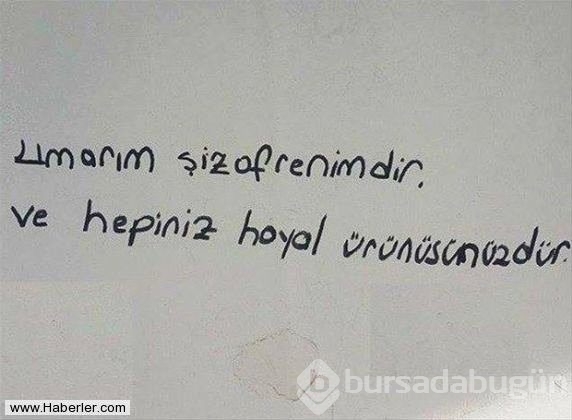 umarım şizofrenimdir.
ve hepiniz hayal ürünüsünüzdür.
bursadabugün
www.Haberler.com